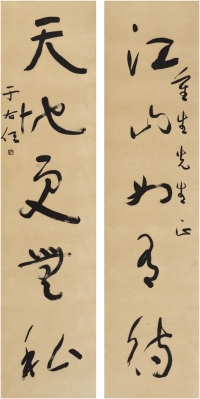 江山如有待
重生先生正
天地更無私
于右任